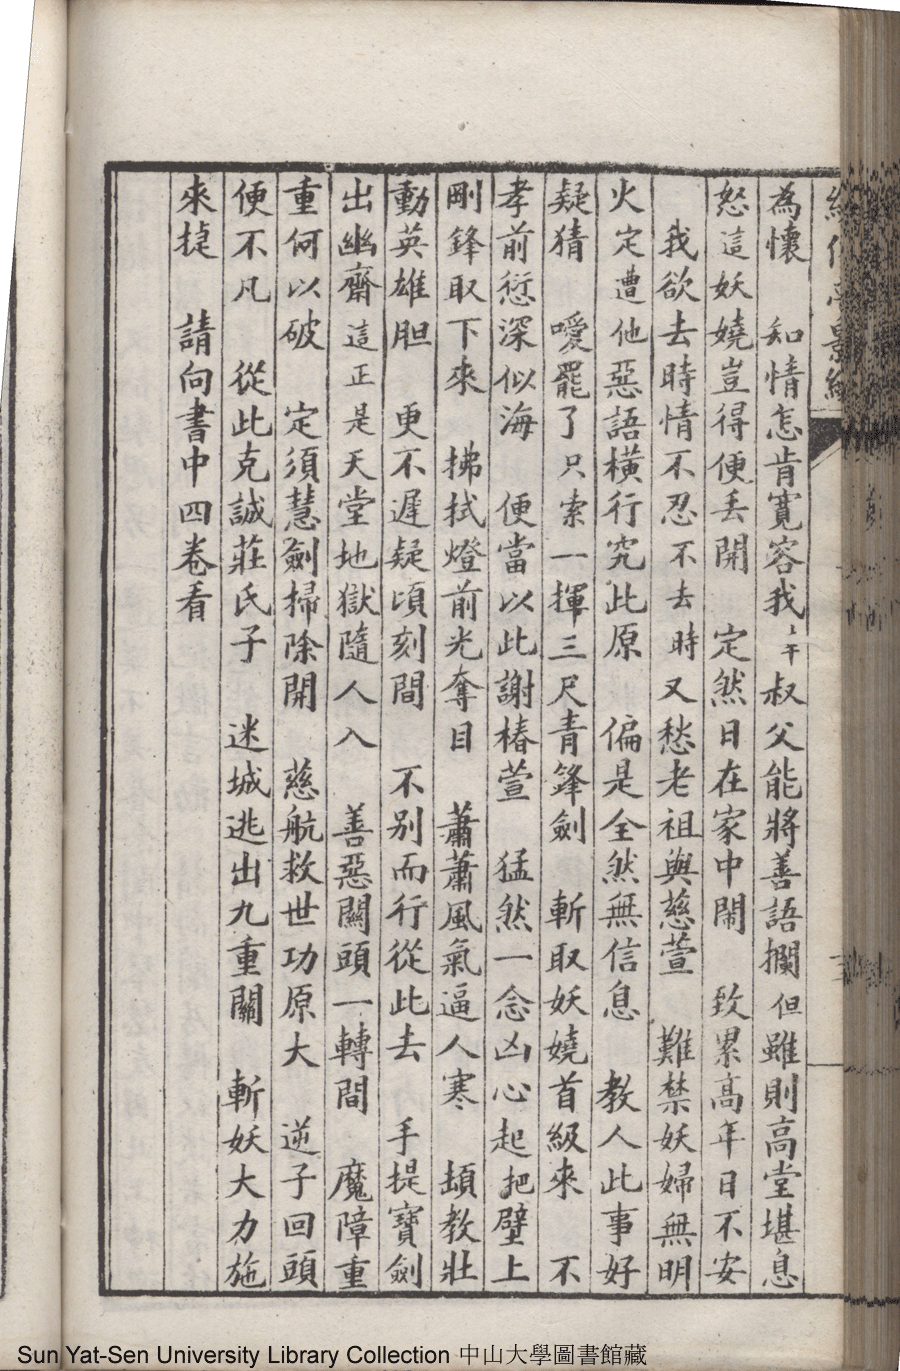 為懷　知情怎肯寬容我　叔父能將善語攔　但雖則高堂堪息
怒這妖嬈豈得便丟開　定然日在家中鬧　致累高年日不安
我欲去時情不忍　不去時又愁老祖與慈萱　難禁妖婦無明
火定遭他惡語橫行究此原　偏是全然無信息　教人此事好
疑猜　噯罷了只索一揮三尺青鋒劍　斬取妖嬈首級來　不
孝前愆深似海　便當以此謝椿萱　猛然一念凶心起把壁上
剛鋒取下來　拂拭燈前光奪目　蕭蕭風氣逼人寒　頓教壯
動英雄胆　更不遲疑頃刻間　不別而行從此去　手提寶劍
出幽齋這正是天堂地獄隨人入　善惡關頭一轉間　魔障重
重何以破　定須慧劍掃除開　慈航救世功原大　逆子回頭
便不凡　從此克誠莊氏子　迷城逃出九重關　斬妖大力施
來㨗　請向書中四卷看
Sun Yat-Sen University Library Collection 中山大學圖書館藏